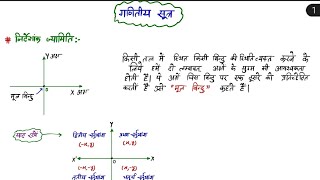 1
गणितीय सूत्र
# निर्देशांक ज्यामिति :-
Y अक्ष
X अक्ष
मूल बिन्दु
किसी तल में स्थित किसी बिन्दु की स्थिति व्यक्त करने के
लिये हमें दो लम्बवत् अक्षों के युग्म की आवश्यकता
होती है। ये अक्षें जिस बिन्दु पर एक दूसरे को प्रतिच्छेदित
करती है उसे "मूल बिन्दु" कहते हैं।
Y
द्वितीय चतुर्थांश
(-x, y)
(x, y)
X
(-x, -y)
(x, -y)
तृतीय चतुर्थांश
चतुर्थ चतुर्थांश